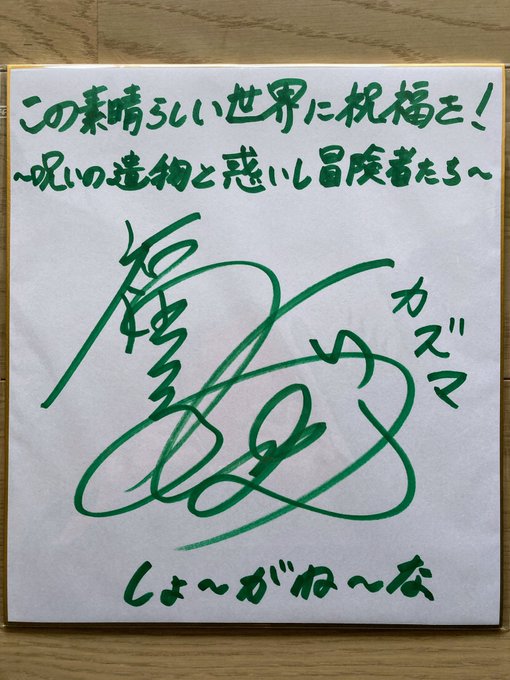 この素晴らしい世界に祝福を!
~呪いの遺物と惑いし冒険者たち~
カズマ
しょ~がね~な